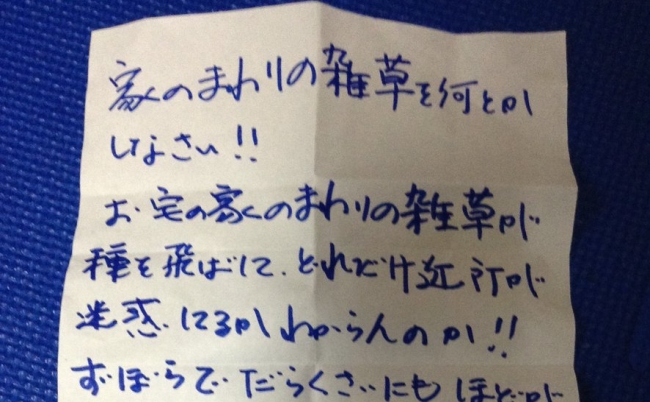 家のまわりの雑草を何とか
しなさい!!
お宅の家のまわりの雑草が
種を飛ばして、どれだけ近所が
迷惑してるかわからんのか!!
ずぼらでだらくさいにもほどが